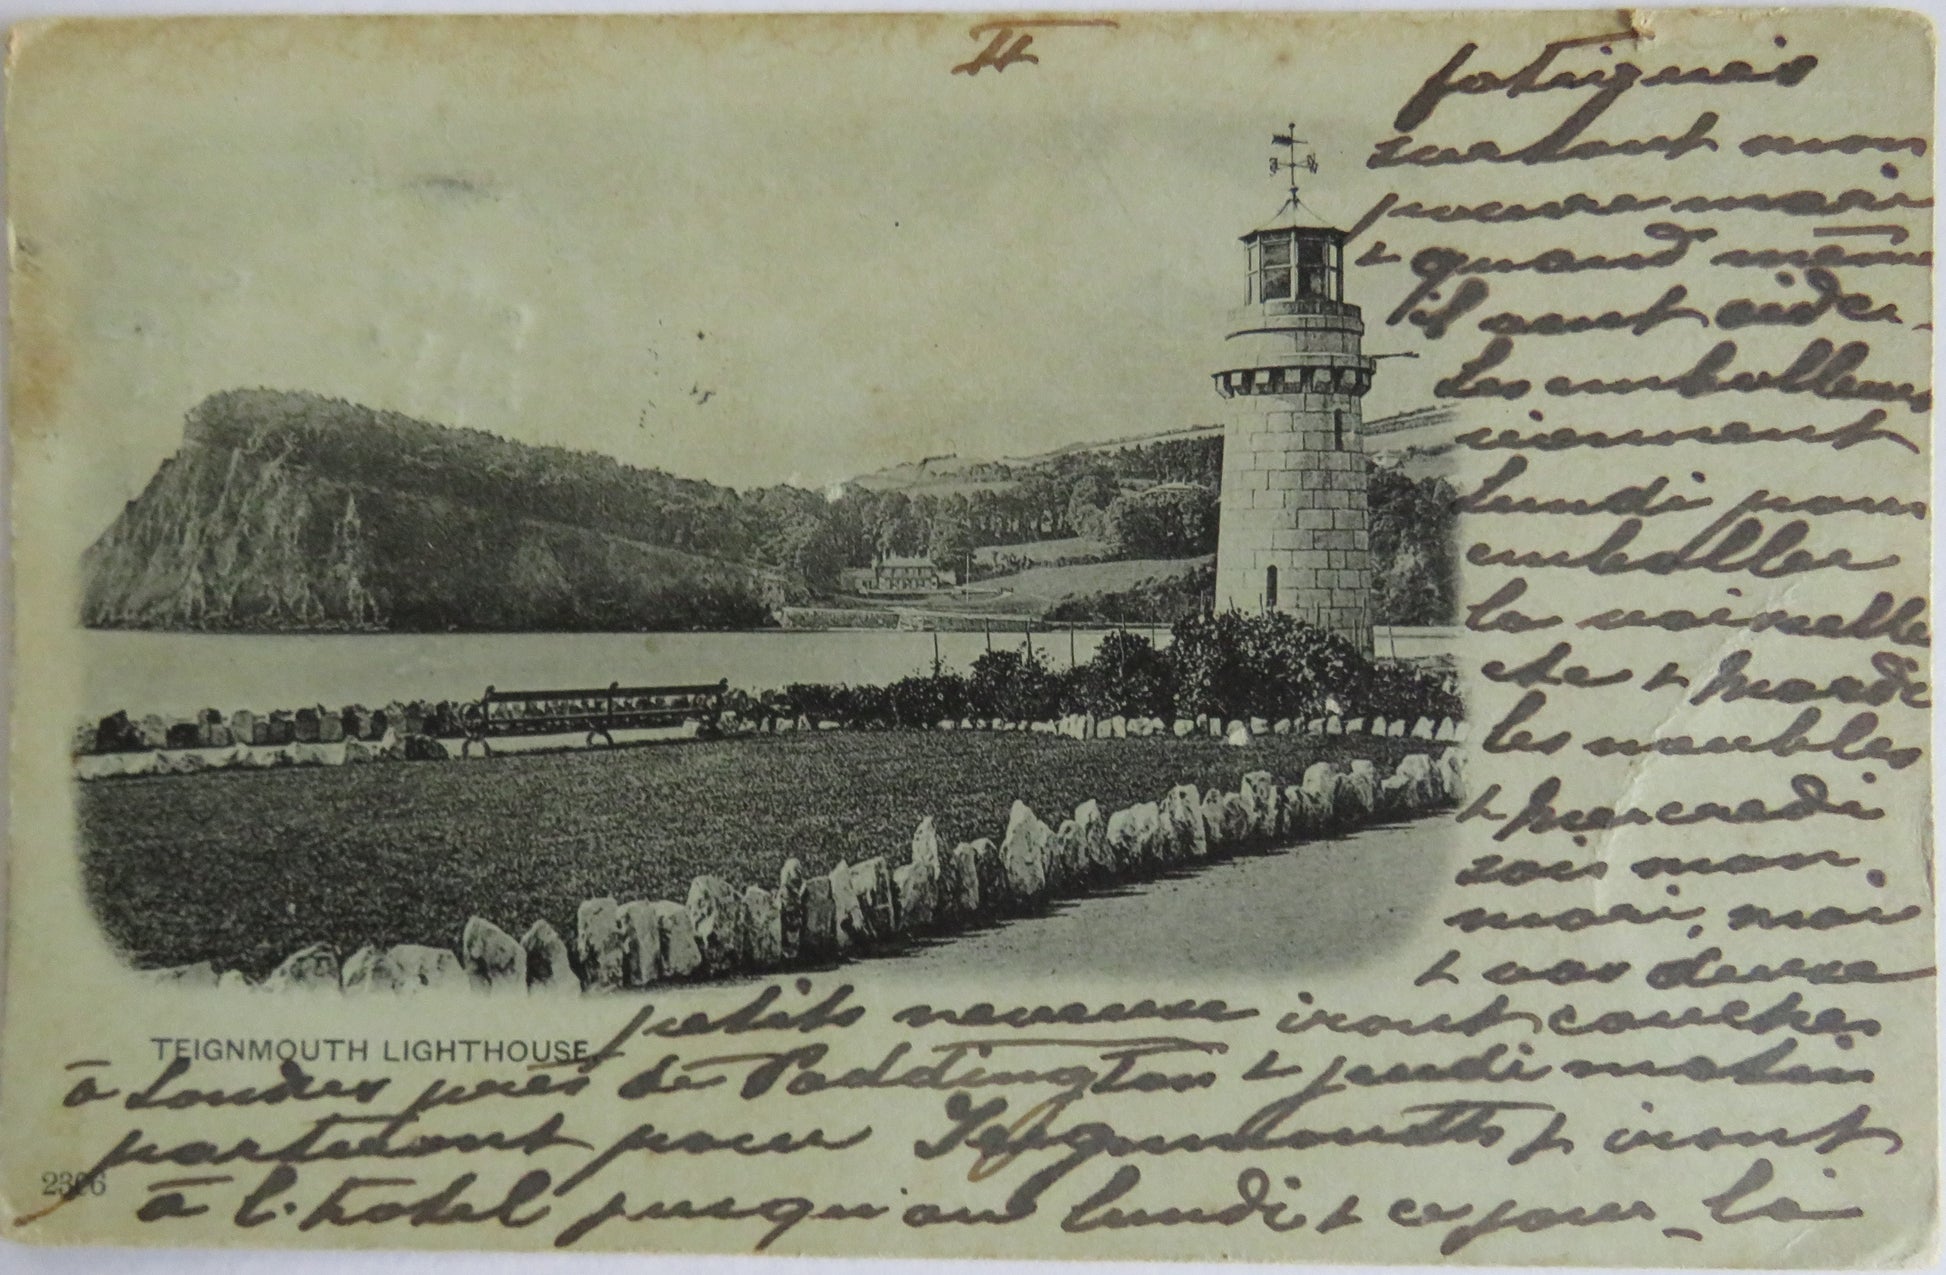 II
fatigués
surtout mon
pauvre mari
& quand même
il veut aider.
Les emballeurs
viennent
Lundi pour
emballer
la vaisselle
etc & Mardi
les meubles
& Mercredi
soir mon
mari, moi
& vos deux
petits neveux iront coucher
TEIGNMOUTH LIGHTHOUSE.
à Londres près de Paddington & jeudi matin
partiront pour Teignmouth & iront
2306
à l'hotel jusqu'au lundi & ce jour-là